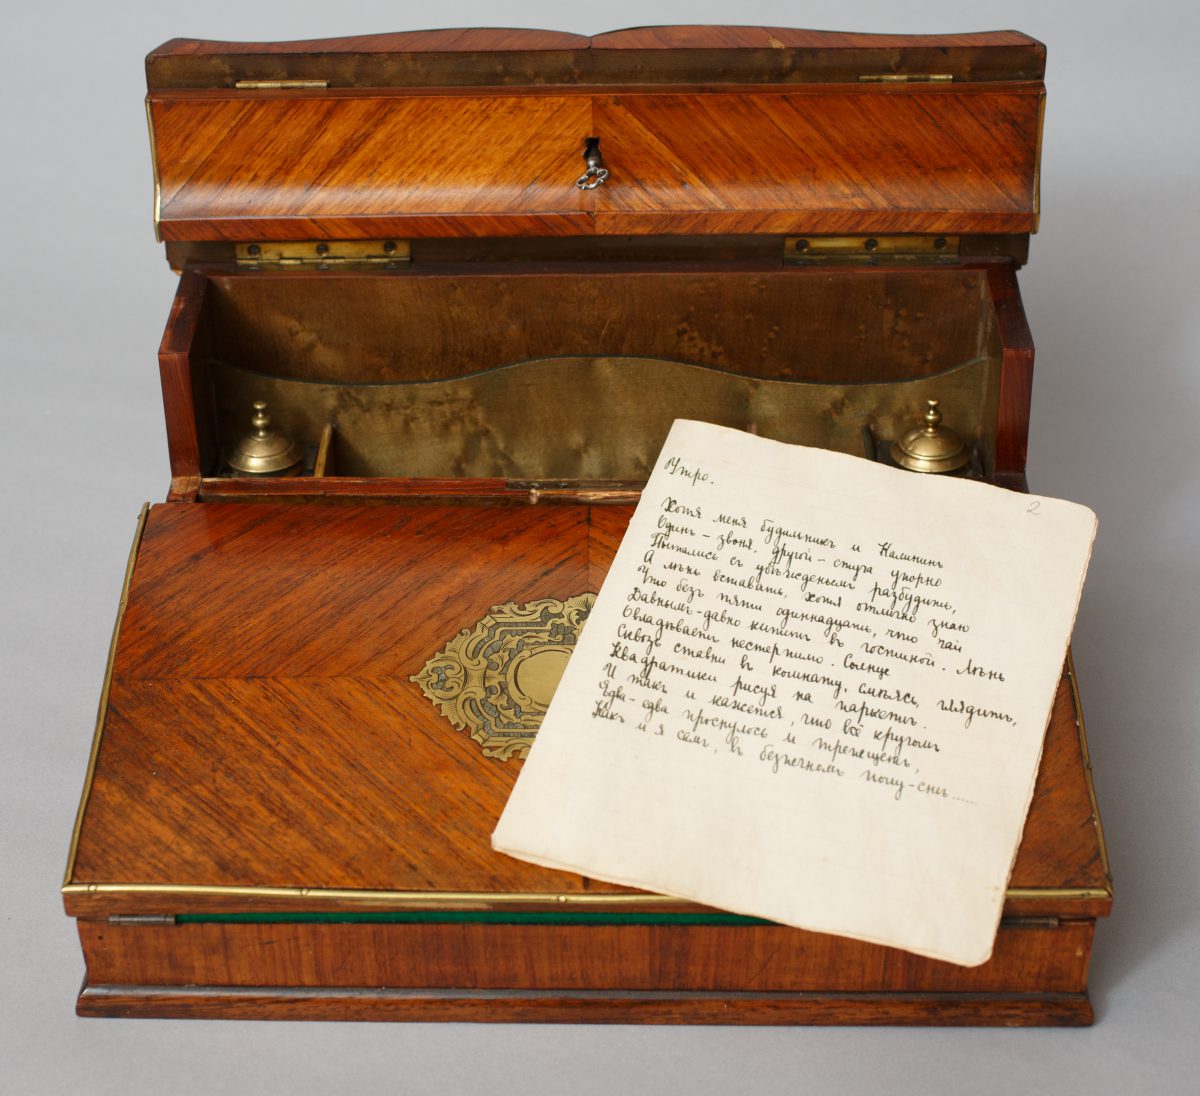 Утро.
2
Хотя меня будильникъ и Калининъ
Одинъ – звоня, другой – стуча упорно
Пытались съ убѣжденьемъ разбудить,
А лѣнь вставать, хотя отлично знаю
Что безъ пяти одиннадцать, что чай
Давнымъ-давно кипитъ въ гостиной. Лѣнь
Овладѣваетъ нестерпимо. Солнце
Сквозь ставни въ комнату, смѣясь, глядитъ,
Квадратики рисуя на паркетѣ.
И такъ и кажется, что всё кругомъ
Едва-едва проснулось и трепещетъ,
Какъ и я самъ, въ безпечномъ полу-снѣ......